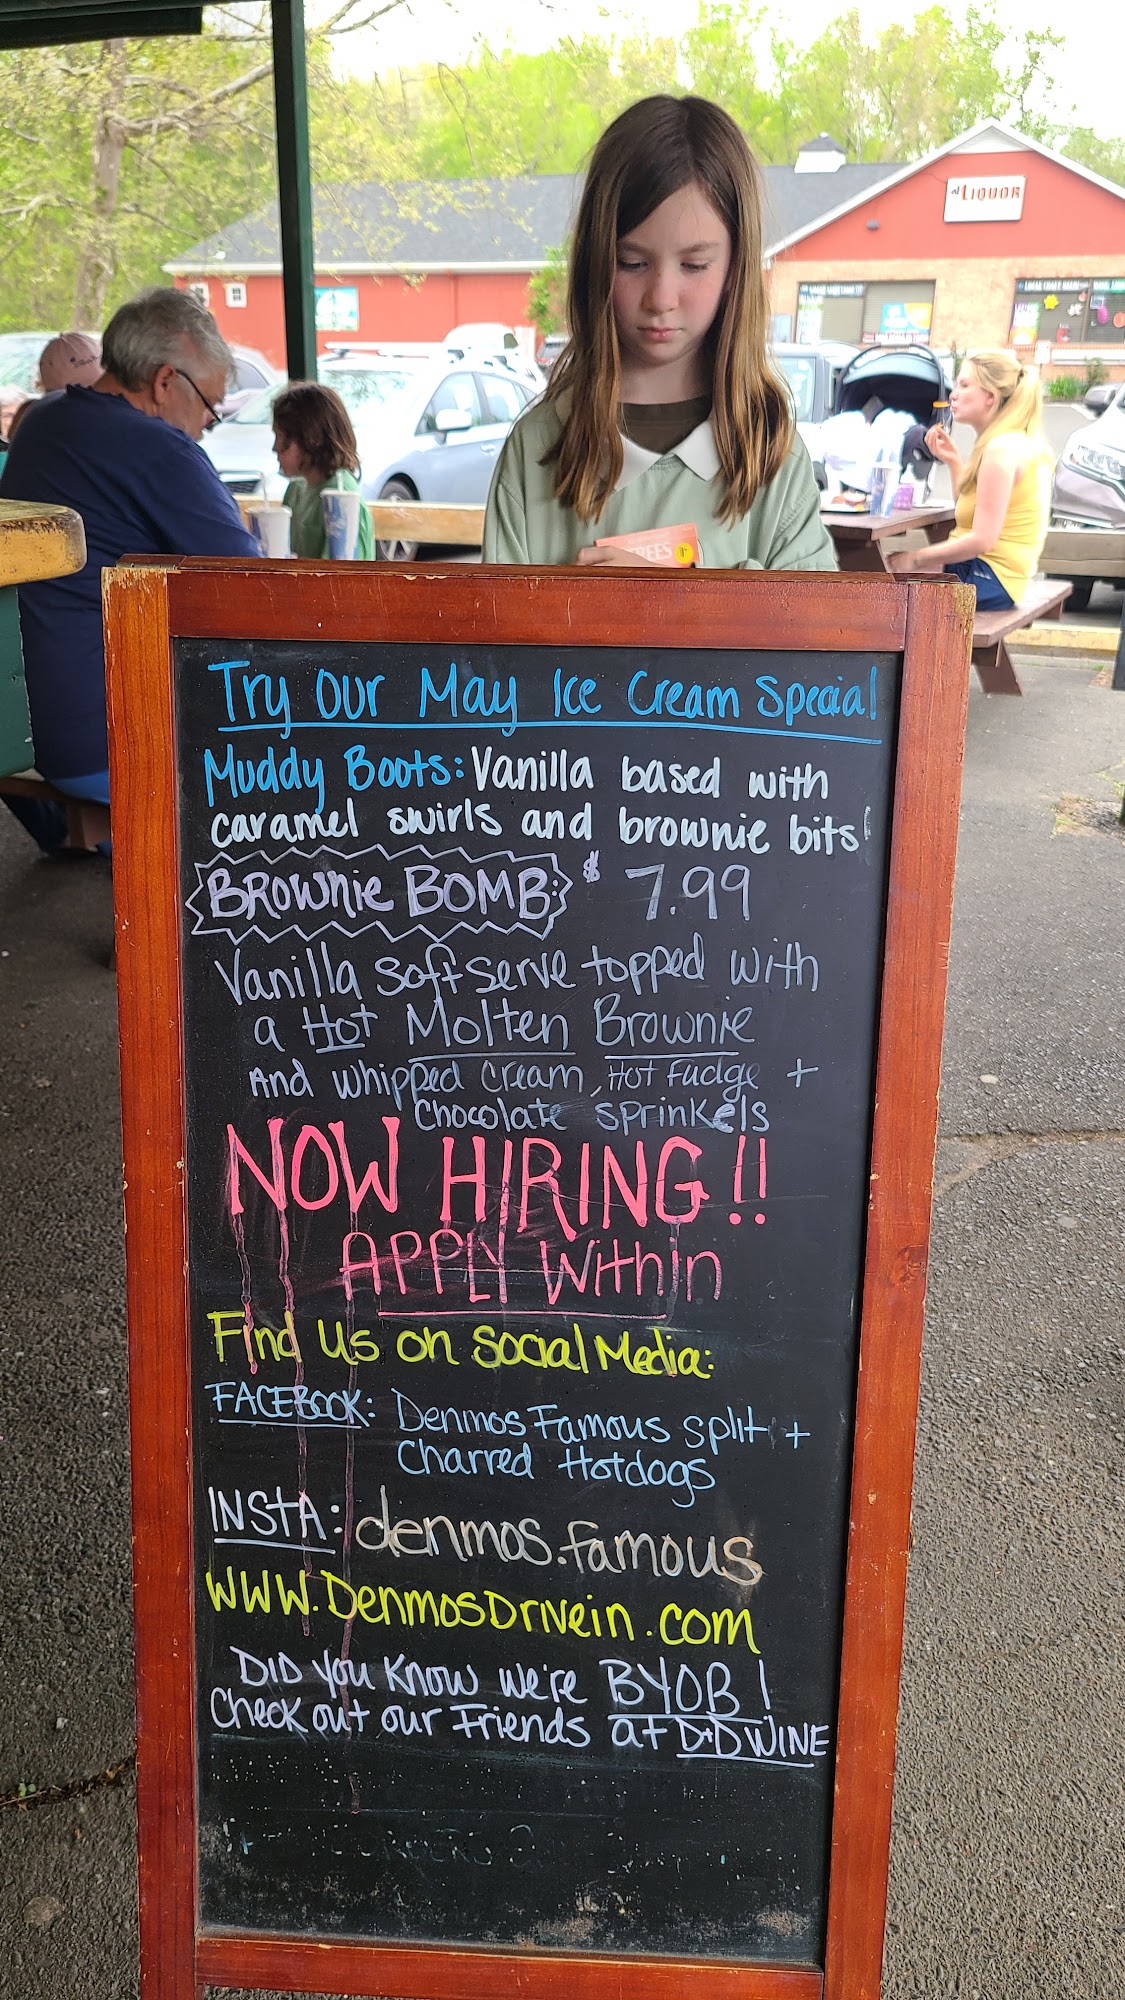 LIQUOR
TREES
Try Our May Ice Cream Special
Muddy Boots: Vanilla based with
caramel swirls and brownie bits!
BROWNIE BOMB: $ 7.99
Vanilla soft serve topped with
a Hot Molten Brownie
And whipped cream, Hot Fudge +
Chocolate sprinkels
NOW HIRING!!
APPLY Within
Find Us on Social Media:
FACEBOOK: Denmos Famous split +
Charred Hotdogs
INSTA: denmos.famous
WWW.DenmosDrivein.com
DID you know we're BYOB!
Check out our Friends at D+D WINE